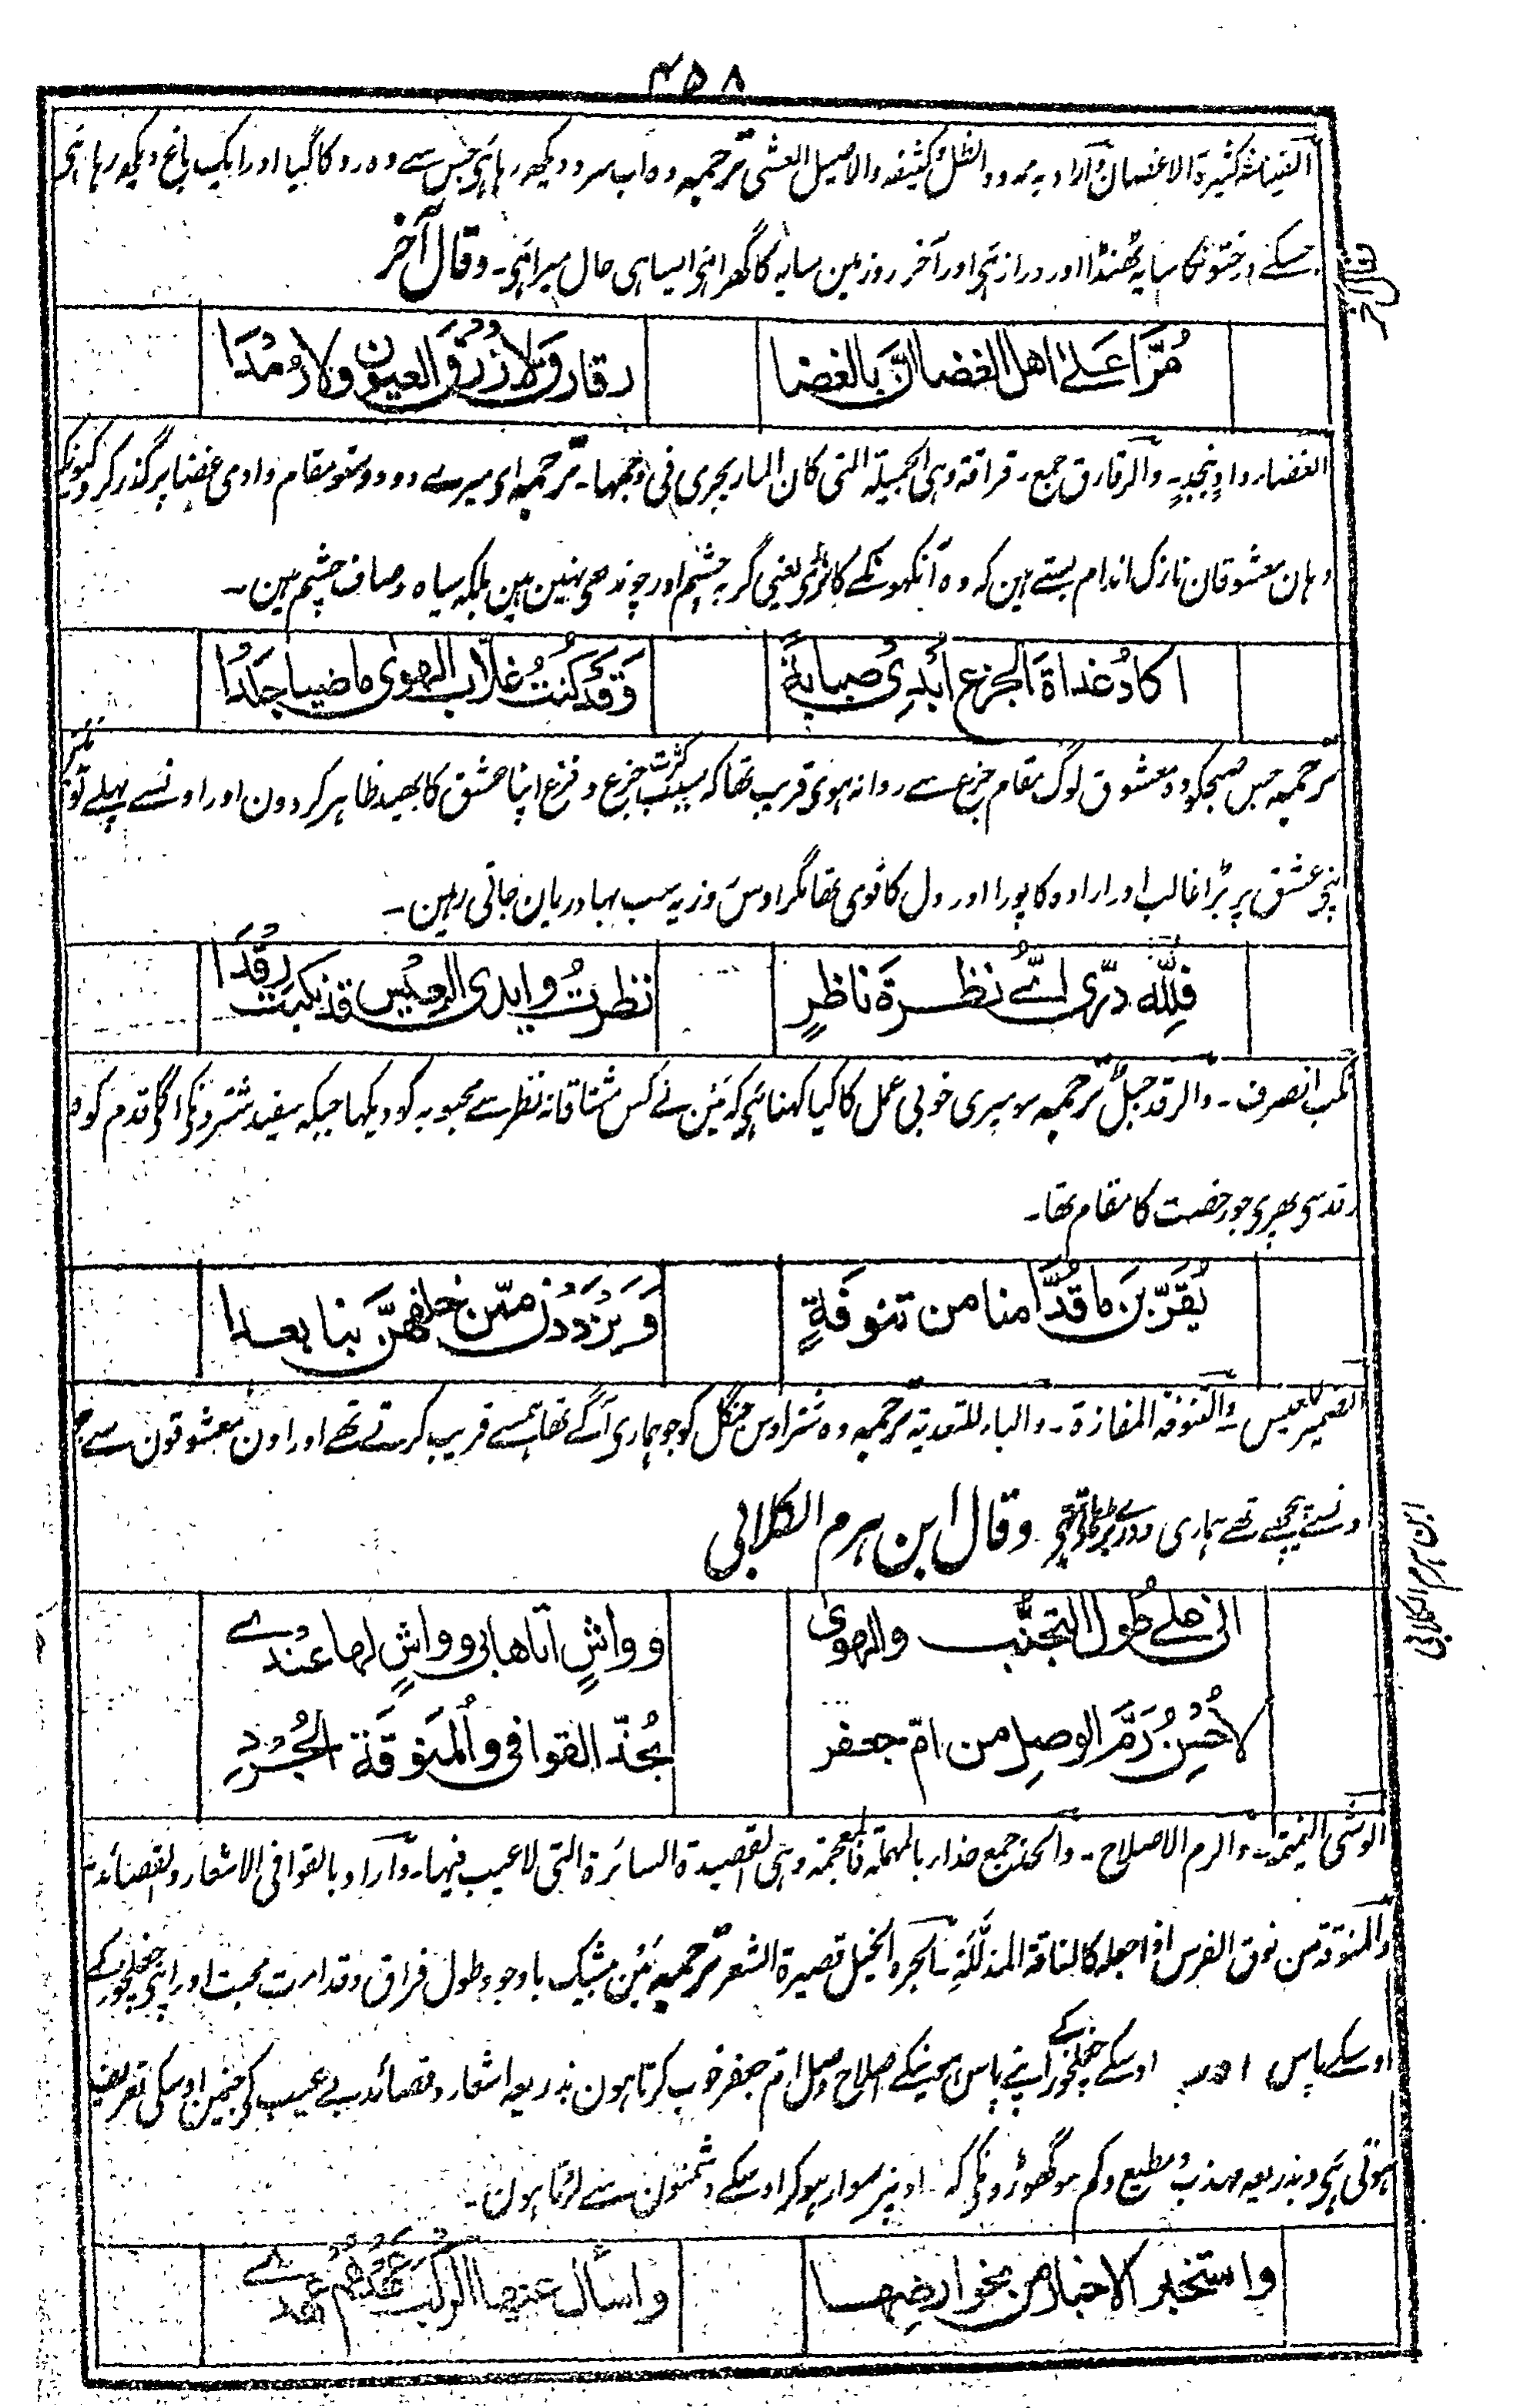 ۴۵۸
الفینانة کثیرة الاغصان وآراد بممدود الظل کثیفه والاصیل العشی ترجمہ وہ اب سرد دیکھ رہا ہی جس سے وہ روکا گیا اور ایک باغ دیکھ رہا ہی
جسکے درختونکا سایہ ٹھنڈا اور دراز ہی اور آخر روز مین سایہ کا گھر ہی ایسا ہی حال میرا ہی۔ وقال آخر
مُرَّا عَلیٰ اهل الغضا انَّ بالغضا
رقارق لا زُرْقَ العیون ولا رُمْدَا
الغضا واد بنجد۔ والرقارق جمع رقراقة وہی الجمیلة التی کان الماء یجری فی وجهها۔ ترجمہ ای میرے دو دوستو مقام وادی غضا پر گذر کرو کیونکہ
وہان معشوقان نازک اندام بستے ہین کہ وہ آنکھونکے کانڑی یعنی گربہ چشم اور چوندھی نہین ہین بلکہ سیاہ وصاف چشم ہین۔
اکادُ غداةَ الجزع اُبْدِیْ صبابةً
وَقَدْ کنتُ غلّاب الهویٰ ماضیا جَلْدَا
ترجمہ جس صبحکو وہ معشوق لوگ مقام جزع سے روانہ ہوی قریب تھا کہ بسبب کثرت جزع وفزع اپنا عشق کا بھید ظاہر کردون اور اونسے پہلے تو مین
اپنی عشق پر بڑا غالب اور ارادہ کا پورا اور دل کا قوی تھا مگر اوس روز یہ سب بہادریان جاتی رہین۔
فللّٰه درّی ایَّ نظرة ناظرٍ
نظرتُ وایدی العیس قد نکبت رقْدَا
نکب انصرف۔ والرقد جبل ترجمہ سو میری خوبی عمل کا کیا کہنا ہی کہ مین نے کس مشتاقانہ نظر سے محبوبہ کو دیکہا جبکہ سفید شترونکی اگلی قدم کوہ
رقد سی پھری جو رخصت کا مقام تھا۔
یُقرّبن ما قُدَّامنا من تنوفَةٍ
وَیَزْدَدْن ممّن خلفهنَّ بنا بعدا
الضمیر للعیس۔ والتنوفة المفازة۔ والباء للتعدیة ترجمہ وہ شتر اوس جنگل کو جو ہماری آگے تھا ہمسے قریب کرتے تھے اور اون معشوقون سے جو
اونسے پیچھے تھے ہماری دوری بڑھاتی تھی۔ وقال ابن ہرم الکلابی
انی علی طُول التجنُّب والهویٰ
وواشٍ اتاها بی وواشٍ لها عندے
لاُحْسِنُ رَمَّ الوصلِ من امّ جعفر
بحُذّ القوافی والمنوّقَة الجُرْدِ
الوشی النمیمة۔ والرم الاصلاح۔ والحذ جمع حذاء بالمهملة فالمعجمة وہی القصیدة السائرة التی لا عیب فیها۔ وآراد بالقوافی الاشعار والقصائد۔
والمنوقة من نوق الفرس اذا جعله کالناقة المذللة۔ والجرد الخیل قصیرة الشعر ترجمہ مین بیشک باوجود طول فراق وقدامت محبت اور اپنی چغلخور کے
اوسکے پاس اور اوسکے چغلخور کے اپنے پاس ہونیکے اصلاح وصل ام جعفر خوب کرتا ہون بذریعہ اشعار وقصائد بے عیب کی جنمین اوسکی تعریف
ہوتی ہی وبذریعہ مہذب ومطیع وکم مو گھوڑونکی کہ اونپر سوار ہوکر اوسکے دشمنون سے لڑتا ہون۔
واستخبر الاخبار من نحو ارضها
واسأل عنها الرکب عهدُهُم عهدے
ابن ہرم الکلابی